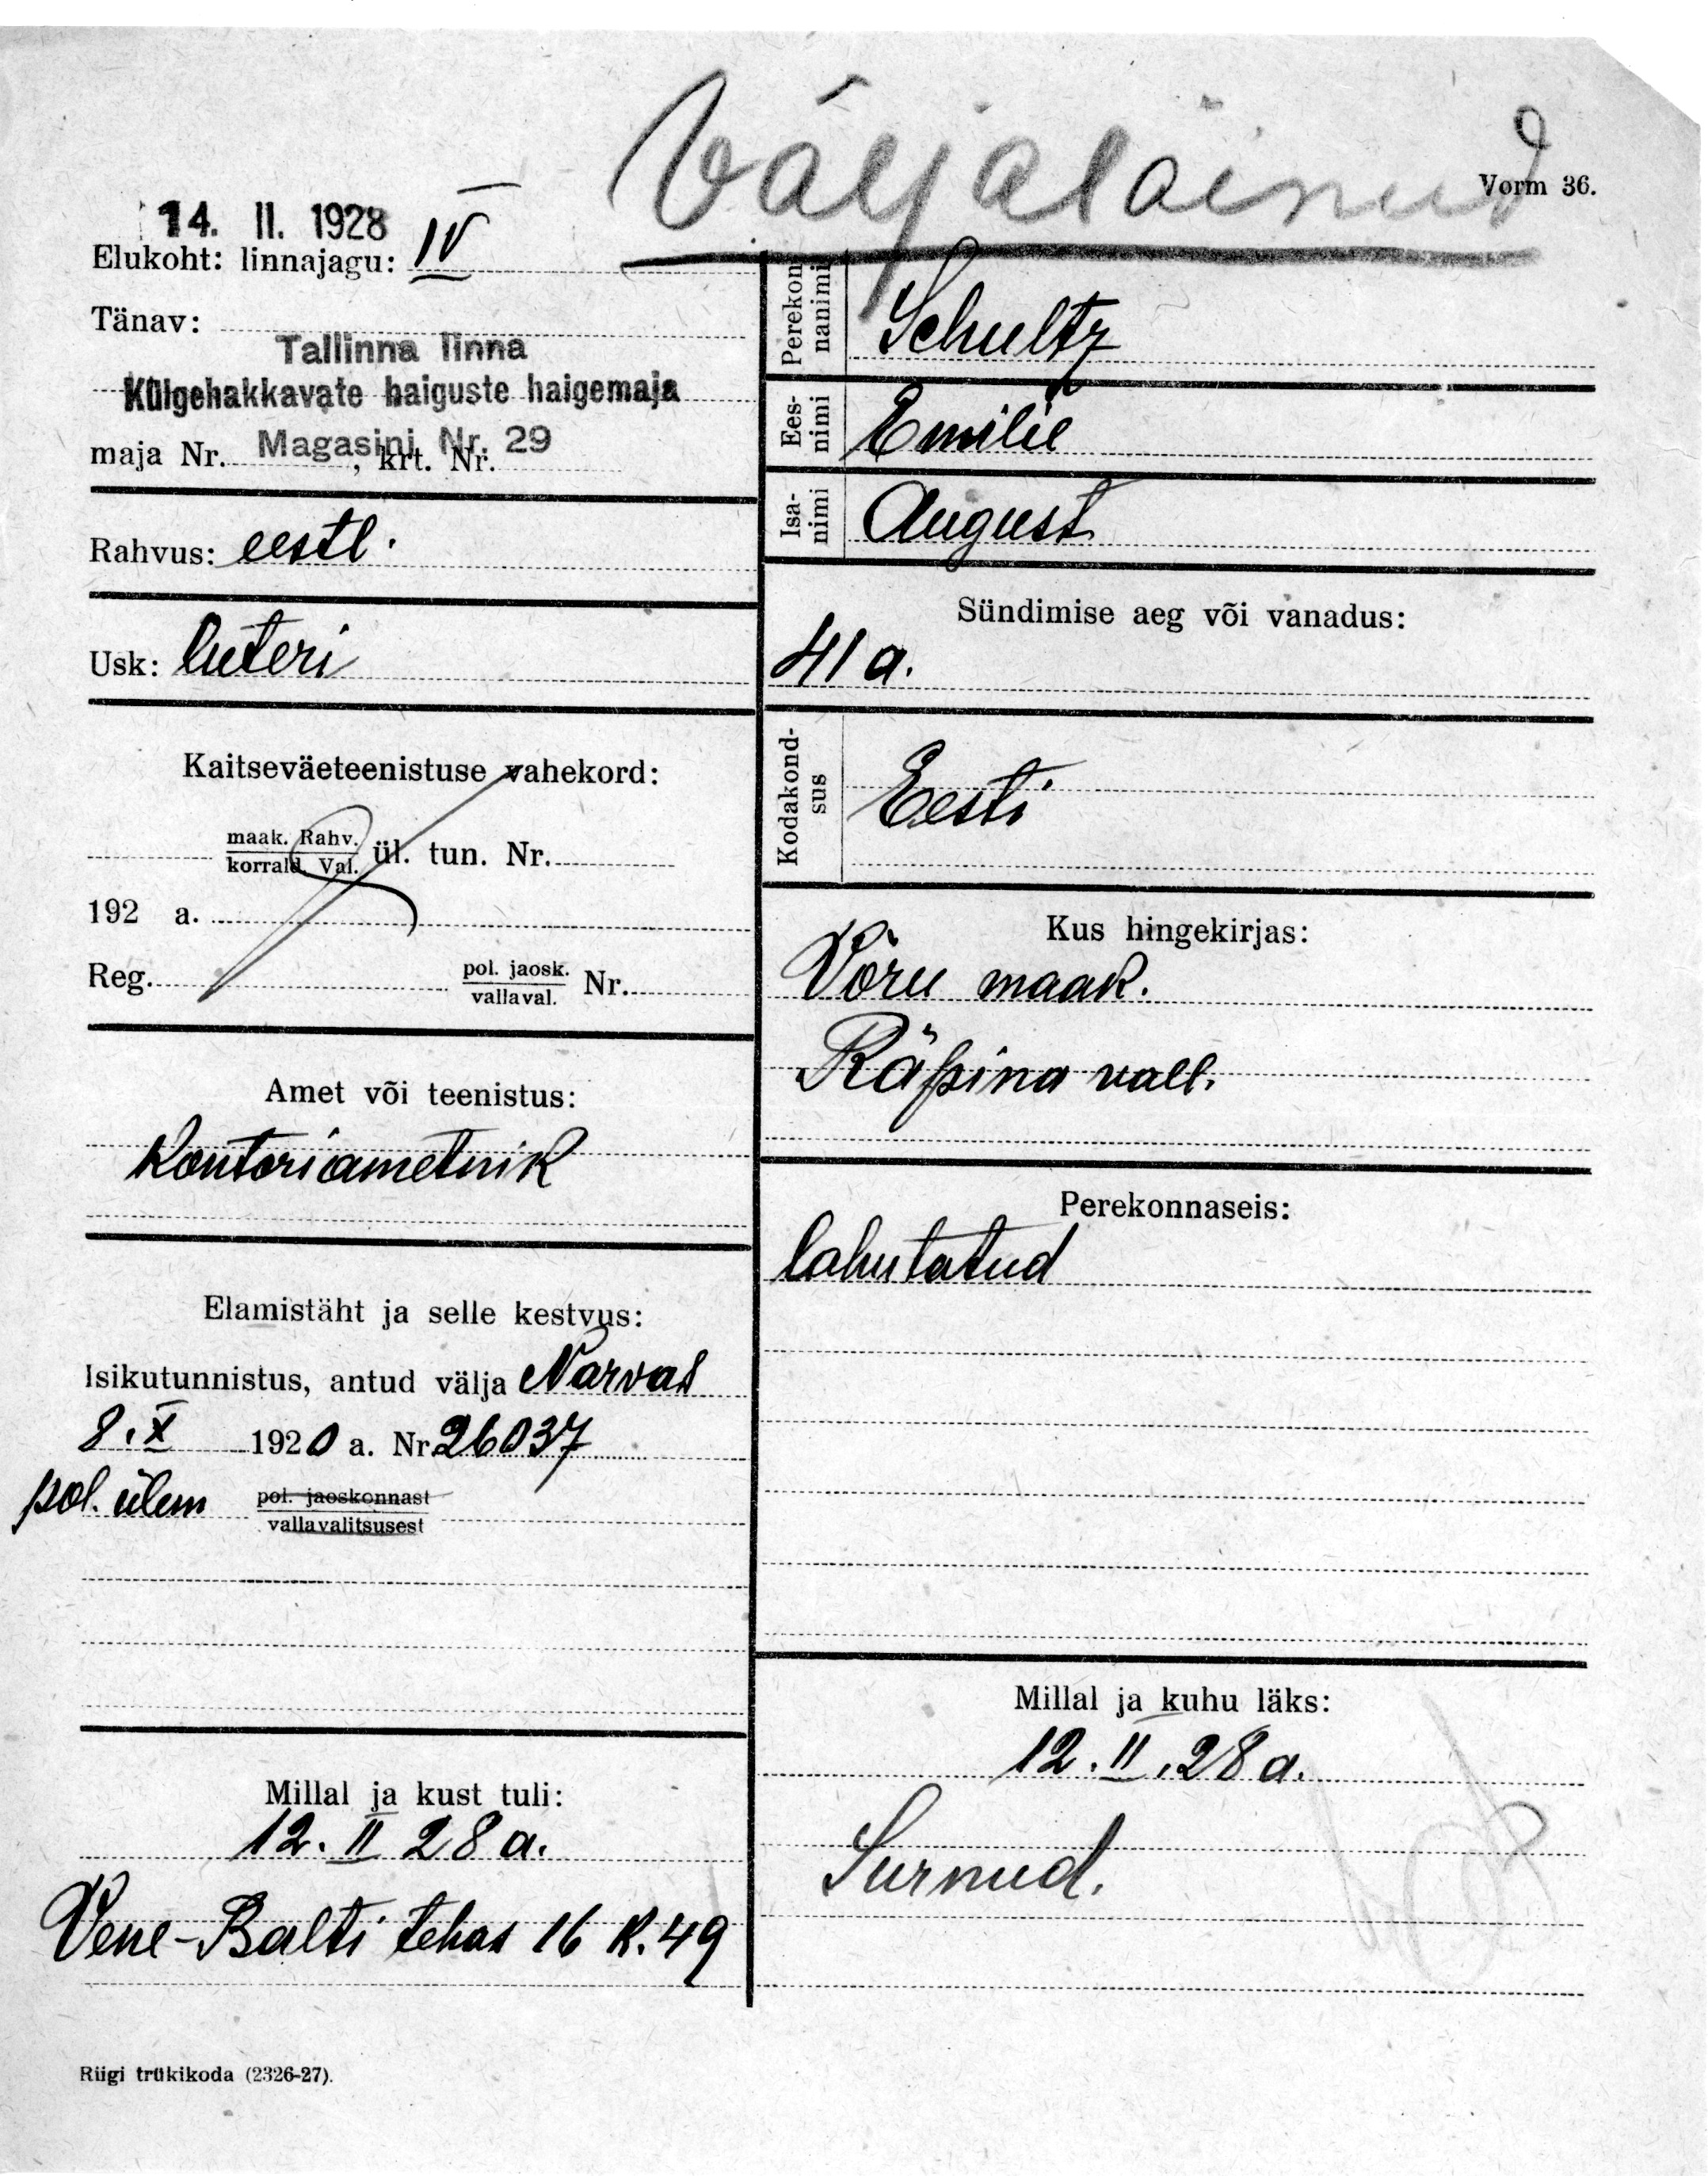 Väljaläinud
Vorm 36.
14. II. 1928
Elukoht: linnajagu: IV
Tänav:
Tallinna linna
Külgehakkavate haiguste haigemaja
maja Nr. , krt. Nr.
Magasini Nr. 29
Rahvus: eestl.
Usk: luteri
Kaitseväeteenistuse vahekord:
maak. Rahv.
korrald. Val. ül. tun. Nr.
192 a.
Reg. pol. jaosk. Nr.
vallaval.
Amet või teenistus:
Kontoriametnik
Elamistäht ja selle kestvus:
Isikutunnistus, antud välja Narvas
8. X 1920 a. Nr 26037
pol. ülem pol. jaoskonnast
vallavalitsusest
Millal ja kust tuli:
12. II 28 a.
Vene-Balti tehas 16 K. 49
Perekon
nanimi
Schultz
Ees-
nimi
Emilie
Isa-
nimi
August
Sündimise aeg või vanadus:
41 a.
Kodakond-
sus
Eesti
Kus hingekirjas:
Võru maak.
Räpina vall.
Perekonnaseis:
lahutatud
Millal ja kuhu läks:
12. II. 28 a.
Surnud.
Riigi trükikoda (2326-27).